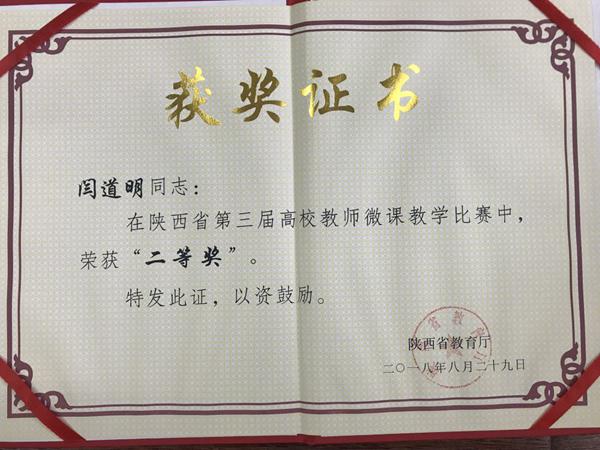 获奖证书
闫道明同志：
在陕西省第三届高校教师微课教学比赛中，
荣获“二等奖”。
特发此证，以资鼓励。
陕西省教育厅
二〇一八年八月二十九日